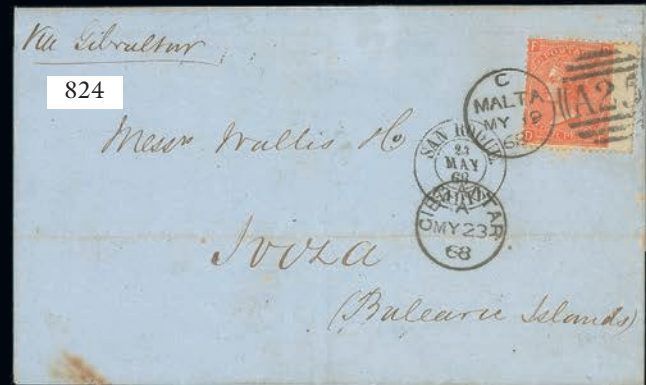 Via Gibraltar
824
C
MALTA
MY 19
68
A25
Messrs Wallis & Co
SAN ROQUE
23
MAY
68
GIBRALTAR
A
MY 23
68
Iviza
(Balearic Islands)